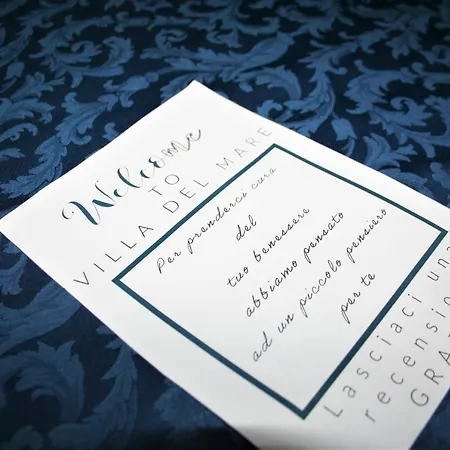 Welcome
TO
VILLA DEL MARE
Per prenderci cura
del
tuo benessere
abbiamo pensato
ad un piccolo pensiero
per te
Lasciaci una
recensio
GRA